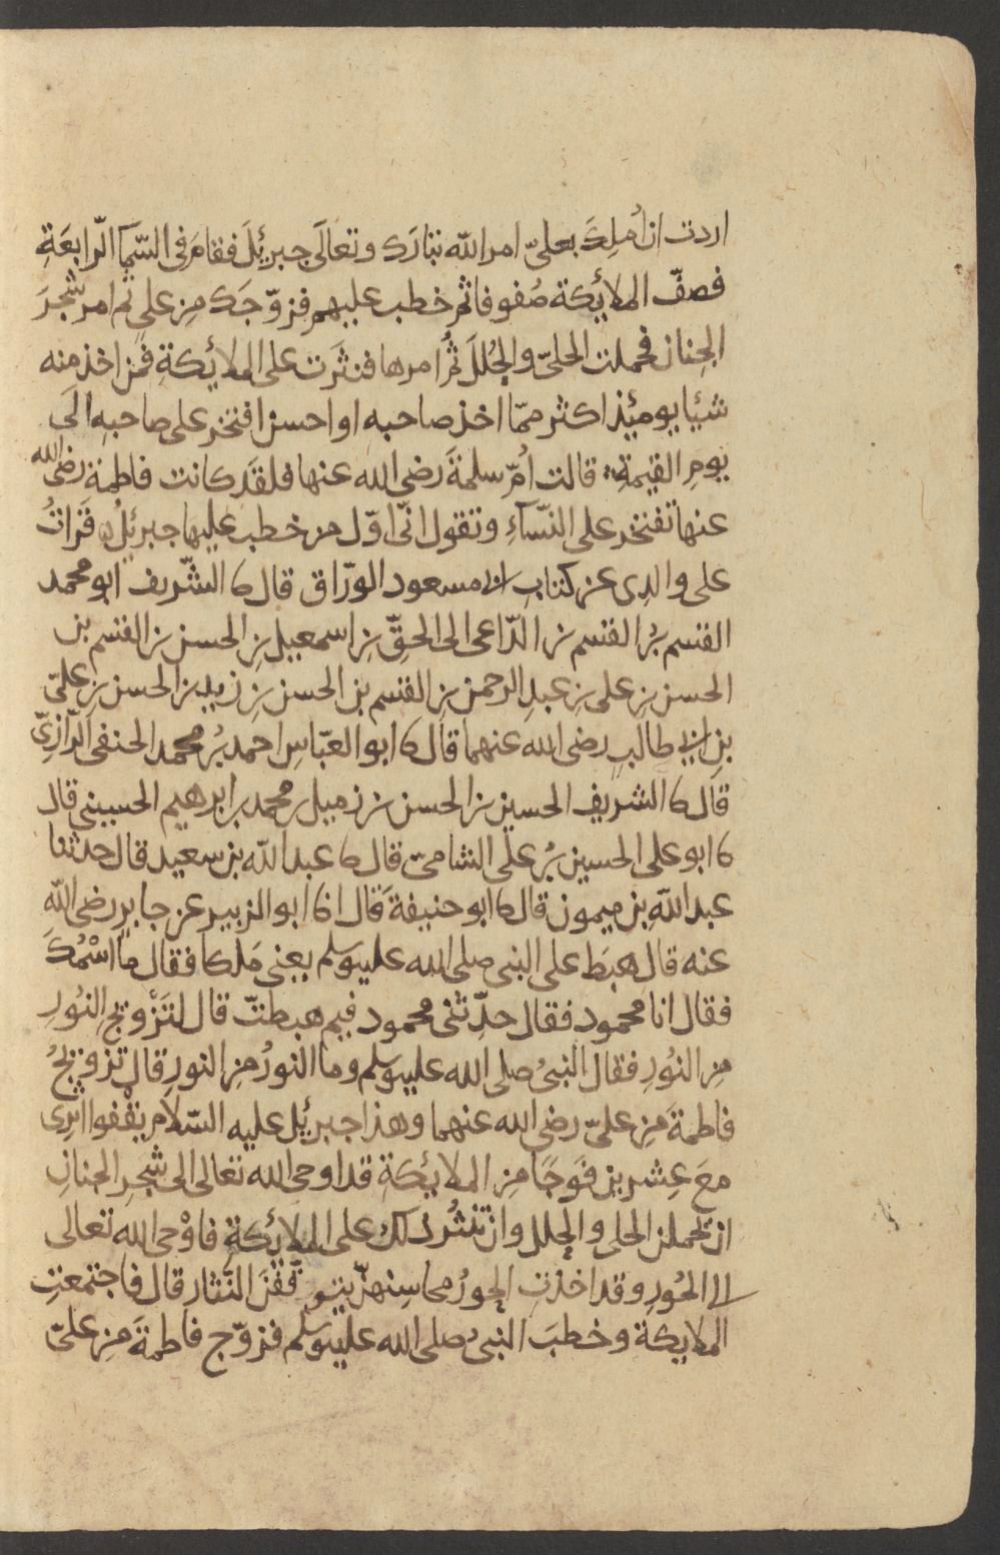 اردت ان أُملِكَ بعلىّ امر الله تبارَك وتعالَى جبرئلَ فقامَ فى السّمآ الرّابعَةِ
فصفّ الملائكة صُفوفا ثمّ خطب عليهم فزوّجَك مِن على ثم امر شجرَ
الجِنان فحملت الحلىّ والحُللَ ثُم امرها فنثرَت على الملائكةِ فمن اخذ منه
شيئا يوميئذ اكثر ممّا اخذ صاحبه او احسن افتخر على صاحبهِ الَى
يومِ القيٰمةِ قالت اُمّ سلمةَ رضى الله عنها فلقَد كانت فاطمة رضى الله
عنها تفتخر على النّسآءِ وتقول انّى اوّل من خطب عليها جبرئلُ قرَاتُ
على والدِى عن كتابِ ابى مسعود الورّاق قال نا الشّريف ابو محمد
القٰسم بنُ القٰسم بن الدّاعى الى الحقّ بن اسمعيل بنِ الحسن بن القٰسم بن
الحسن بن على بن عبدِ الرحمن بن القٰسم بن الحسن بن زيد بن الحسن بن علىّ
بنِ ابى طالبٍ رضى الله عنهما قال نا ابو العبّاس احمد بنُ محمد الحنفى الرّازىّ
قال نا الشريف الحسين بن الحسن بن زميل بن محمد بن ابرهيم الحسينى قال
نا ابو على الحسين بنُ على الشامىّ قال نا عبد الله بن سعيد قال حدثنا
عبد اللهِ بن ميمون قال نا ابو حنيفةَ قال انا ابو الزبير عن جابرٍ رضى اللهِ
عنه قال هبَط على النبى صلى الله عليه وسلم يعنى مَلكا فقال ما اسْمُكَ
فقال انا محمود فقال حدّثنى محمود فيم هبطتّ قال لتَزْويجِ النُورِ
مِن النُورِ فقال النبىُ صلى الله عليه وسلم وما النورُ مِن النورِ قال تزويجُ
فاطمةَ مِن علىّ رضى الله عنهما وهذا جبرئل عليه السّلام يقْفوا اثرِى
معَ عِشرين فَوجًا مِن الملائكةِ قد اوحى الله تعالى الى شجرِ الجنانِ
ان تحملن الحلى والحلل وان تنثُر ذلك على الملائكةِ فاوْحى الله تعالى
الى الحُورِ وقد اخذتِ الحورُ محاسنهنّ النّثار قال فاجتمعتِ
الملايكة وخطبَ النبىُ صلى الله عليه وسلم فزوّج فاطمةَ مِن علىّ